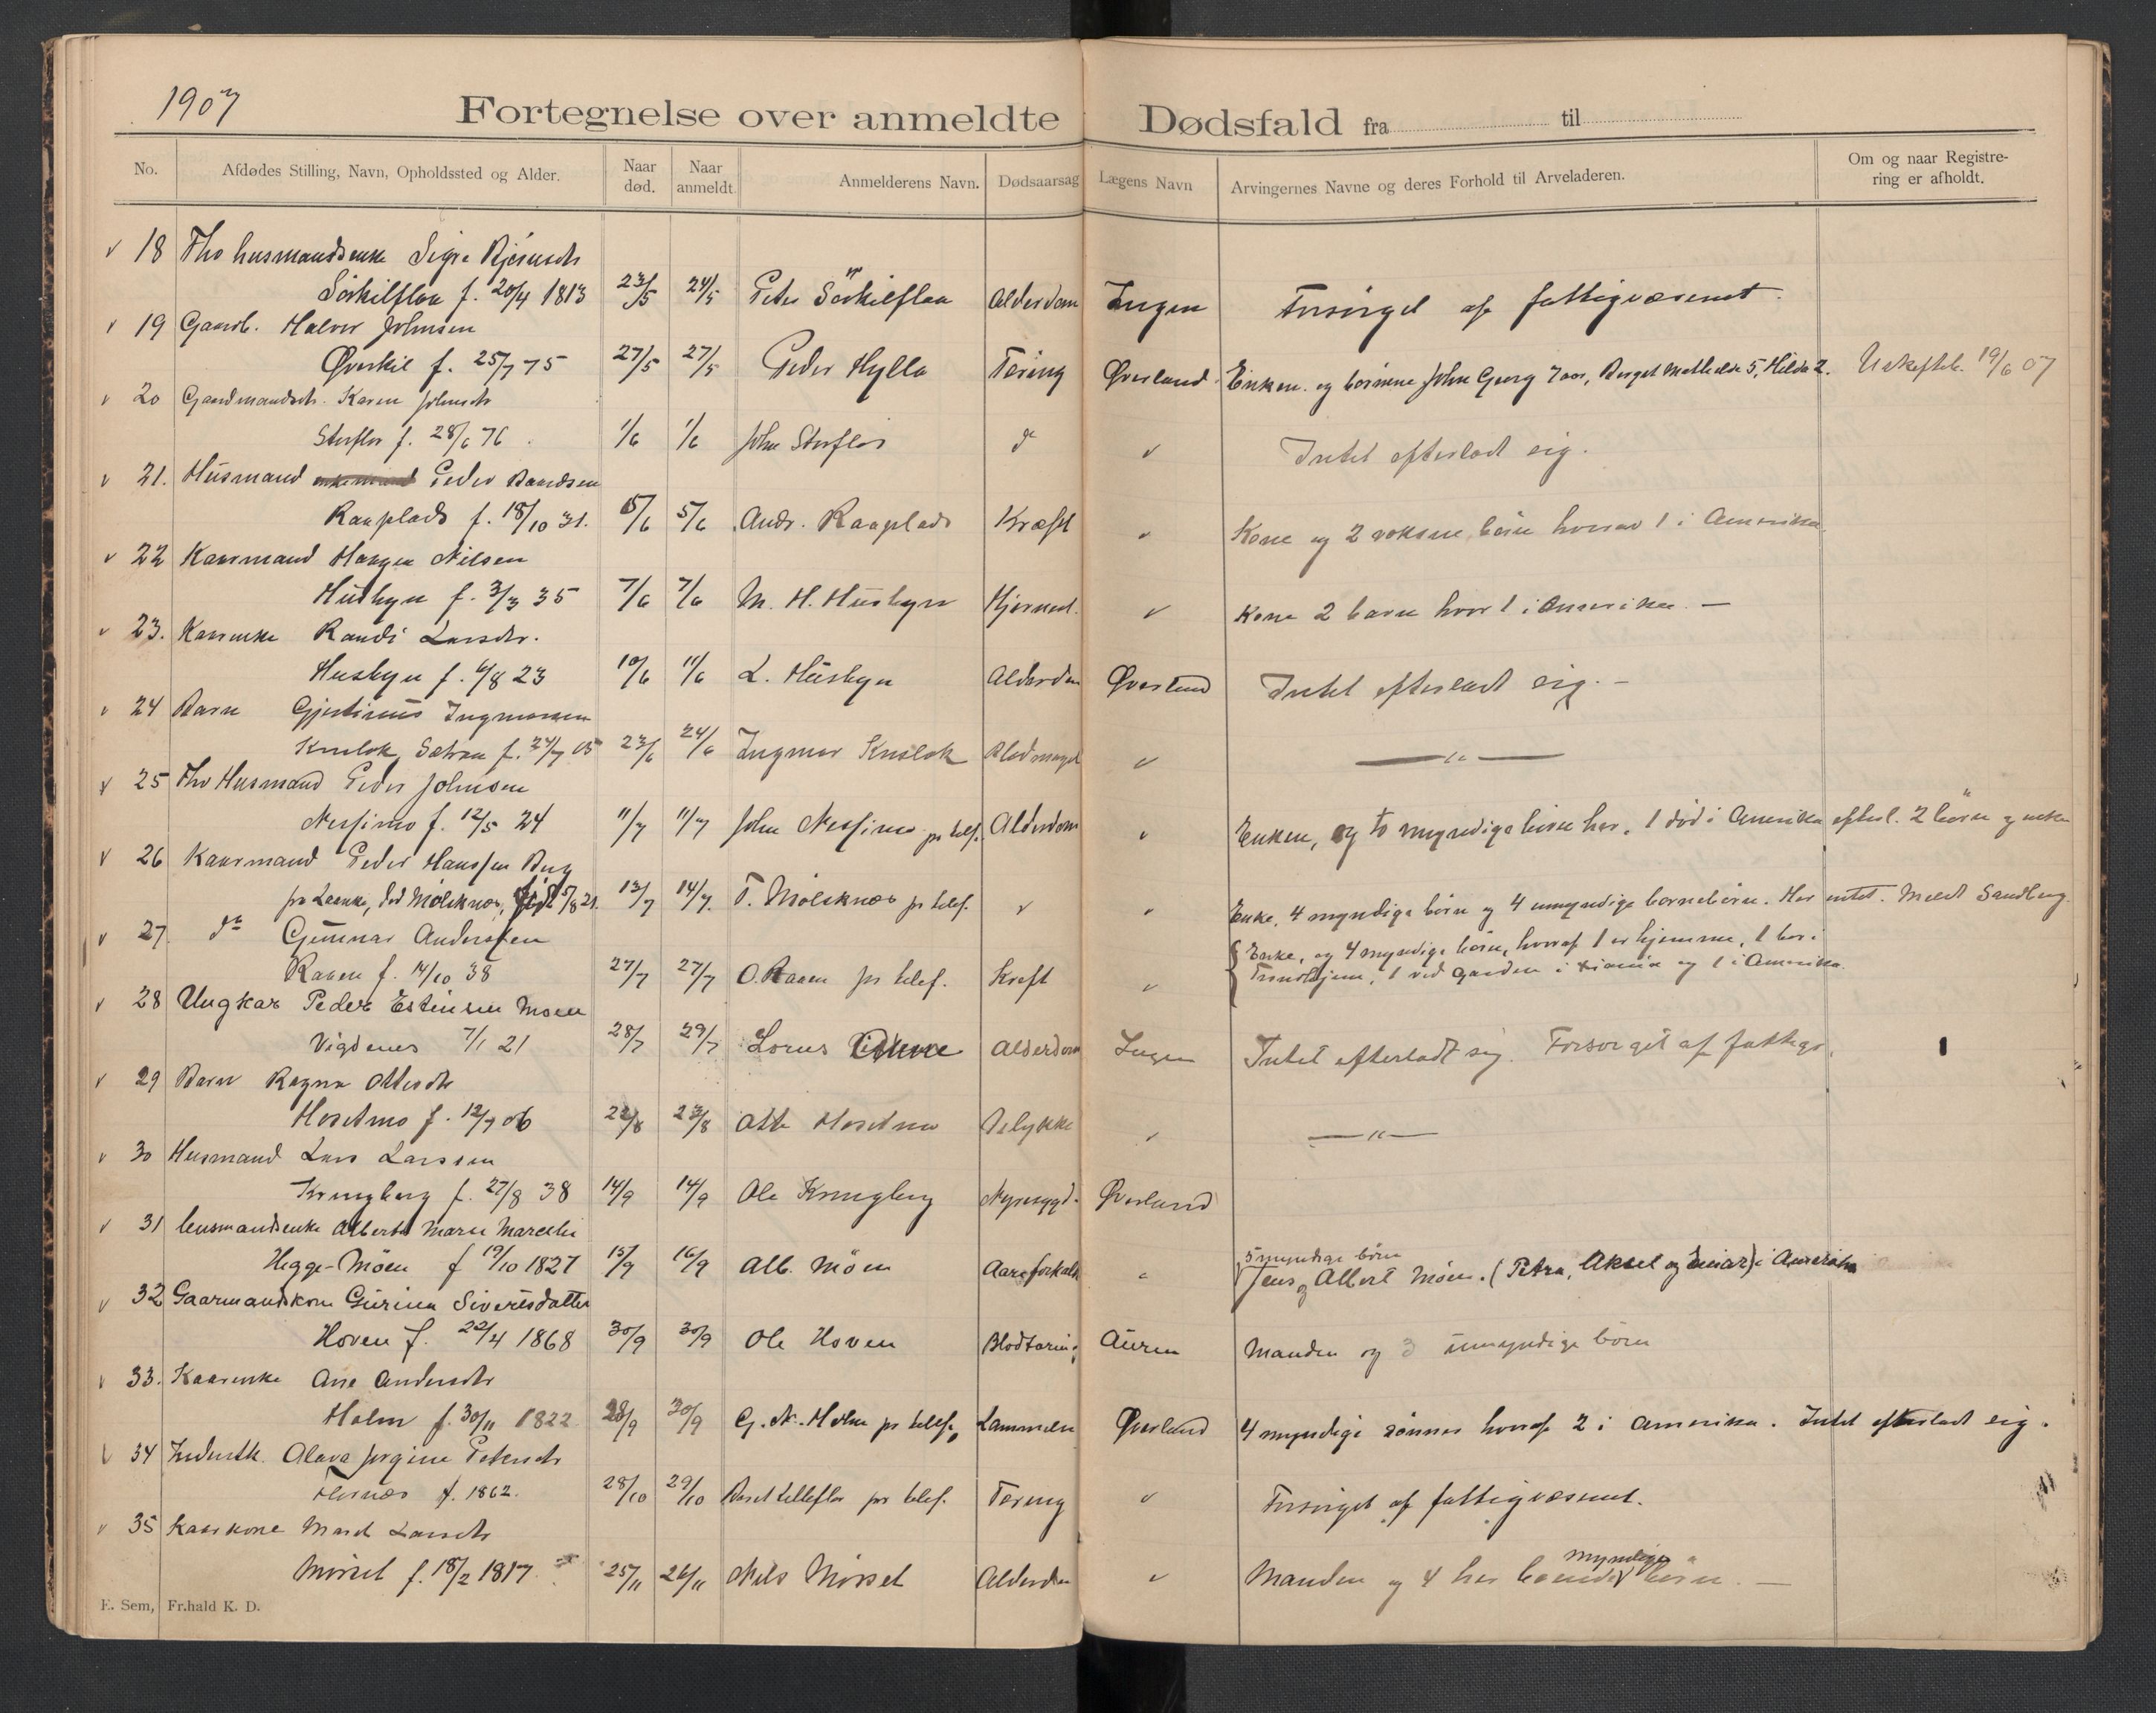 1907
Fortegnelse over anmeldte Dødsfald fra til
No. Afdødes Stilling, Navn, Opholdssted og Alder. Naar død. Naar anmeldt. Anmelderens Navn. Dødsaarsag Lægens Navn Arvingernes Navne og deres Forhold til Arveladeren. Om og naar Registrering er afholdt.
18 Fhv husmandsenke
f. 20/4 1813 23/5 24/5 Peter Alderdom Ingen Forsørget af fattigvæsenet.
19 Gaardb. Halvor Johnsen
Øverkil f. 25/7 75 27/5 27/5 Peder Hylla Tæring Øverland Enken og børnene John Georg 7 aar, Berget Mathilde 5, Hilda 2. 19/6 07
20 Gaardmandsdtr. Karen Johnsdtr
Storflor f. 28/6 76 1/6 1/6 John Storflor do Intet efterladt sig.
21. Husmand Peder Baardsen
Raaplads f. 18/10 31. 5/6 5/6 Andr. Raaplads Kræft Kone og 2 voksne børn hvorav 1 i Amerika
22 Kaarmand Haagen Nilsen
Husbyn f. 3/3 35 7/6 7/6 M. H. Husbyn Kone 2 barn hvor 1 i Amerika. —
23. Kaarenke Randi Larsdtr.
Husbyn f. 6/8 23 10/6 11/6 L. Husbyn Alderdom Øverland Intet efterladt sig. —
24 Barn Gjertinus Ingmarsen
f. 24/7 05 23/6 24/6 Ingmar — " —
25 Fhv Husmand Peder Johnsen
f. 12/5 24 11/7 11/7 John pr telef. Alderdom Enken, og to myndige børn her, 1 død i Amerika efterl. 2 børn og enke
26 Kaarmand Peder Hanssen
født 5/8 21. 13/7 14/7. T. Mølsknæs pr telef. Enke, 4 myndige børn og 4 umyndige børnebørn. Her intet. Meldt Sandberg.
27. do Gunnar Anderssen { Enke, og 4 myndige børn, hvoraf 1 er hjemme, 1 bor i
Raaen f. 14/10 38 27/7 27/7 O. Raaen pr telef. Kreft Trondhjem, 1 ved Garden i Kiania og 1 i Amerika.
28 Ungkar Peder Estensen Moen
Vigdenes 7/1 21 28/7 29/7 Lorns Alderdom Ingen Intet efterladt sig. Forsørget af fattigv.
29 Barn Ragna Ottesdtr
Hosetmo f. 12/7 06 22/8 23/8 Otto Hosetmo Ulykke — " —
30 Husmand Lars Larssen
Kringberg f. 27/8 38 14/9 14/9 Ole Kringberg Nyresygd. Øverland
31 Husmandsenke Alberta Marie
Hegge-Möen f 19/10 1827 15/9 16/9 Alb. Möen Aareforkalk 5 myndige børn
Jens og Albert Möen. (Petra, Aksel og Einar) i Amerika
32 Gaarmandskone Gurina Sivertsdatter
Hoven f. 22/4 1868 30/9 30/9 Ole Hoven Auren Manden og 3 umyndige børn
33. Kaarenke Ane Andersdtr
Holm f. 30/11 1822 28/9 30/9 G. N. Holm pr telef. Lammelse Øverland 4 myndige sønner hvoraf 2 i Amerika. Intet efterladt sig.
34 Olava Jørgine Petersdtr
f. 1862. 28/10 29/10 pr telef. Tæring Forsørget af fattigvæsenet.
35 Kaarkone Marit Larsdtr
Mörset f. 18/2 1817 25/11 26/11 Nils Mörset Alderdom Manden og 4 her boende myndige børn. —
E. Sem, Fr.hald K. D.